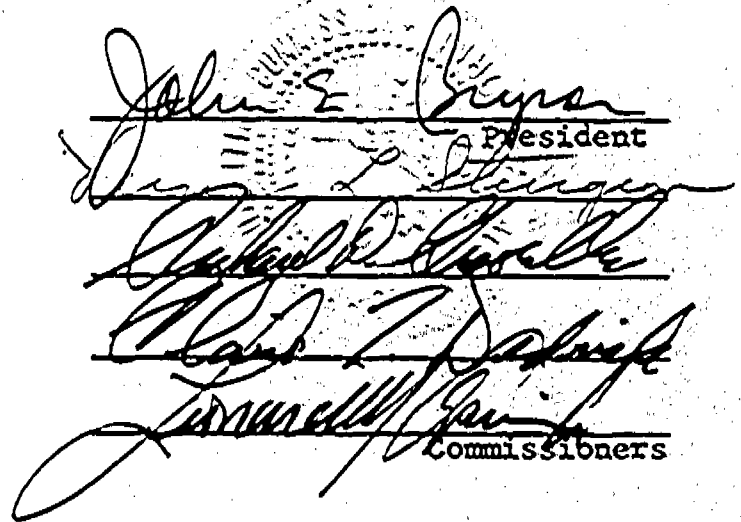 John E Bryson
President
L Sturgeon
Richard D. Gravelle
Claire T. Dedrick
Leonard M.
Commissioners